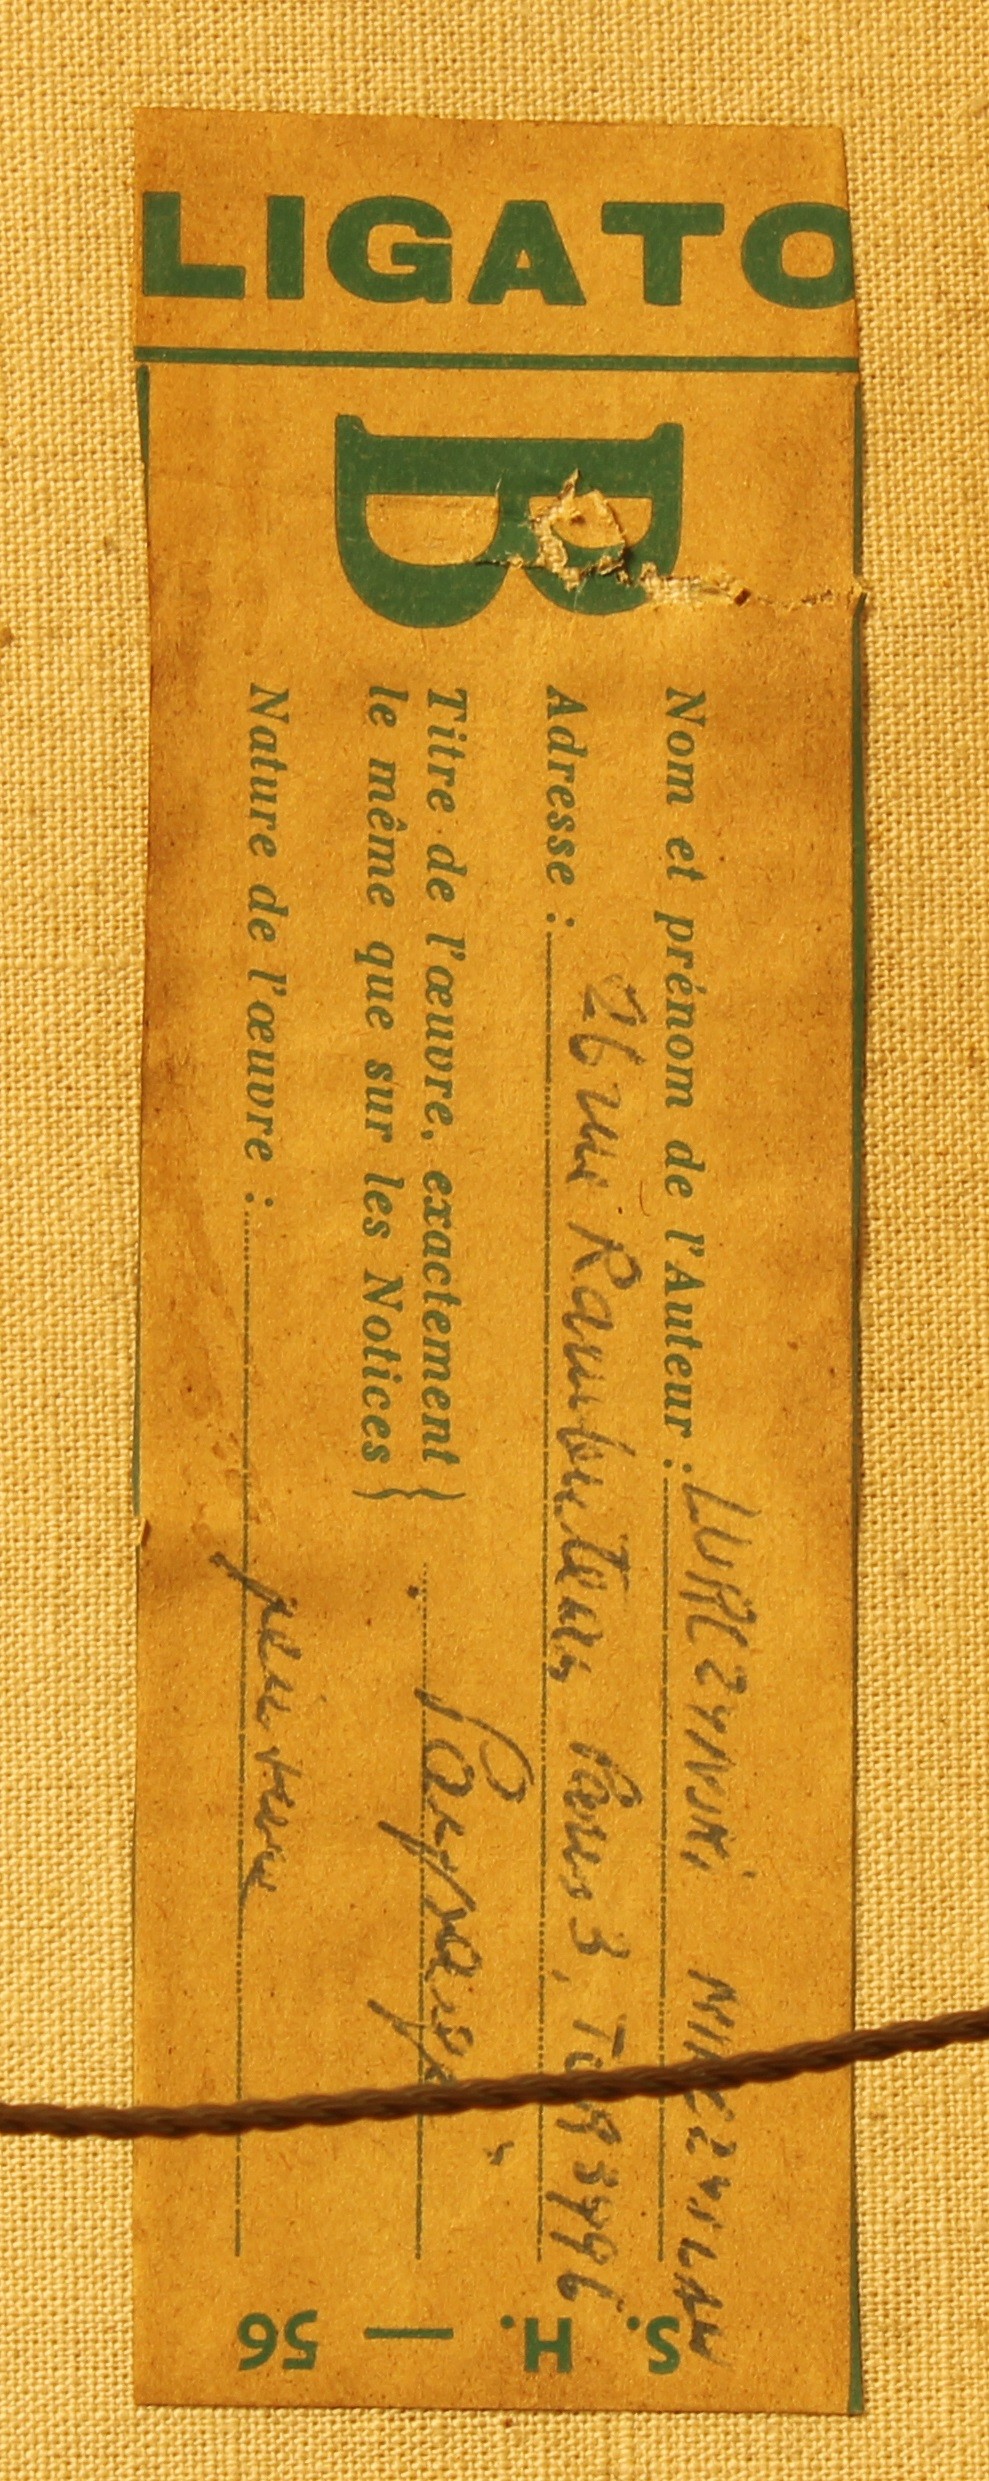 LIGATO
B
Nom et prénom de l'Auteur : LURCZYNSKI MIECZYSLAW
Adresse : 26 rue Rambuteau Paris 3,
Titre de l'œuvre, exactement
le même que sur les Notices } Paysage
Nature de l'œuvre : peinture
S. H. — 56